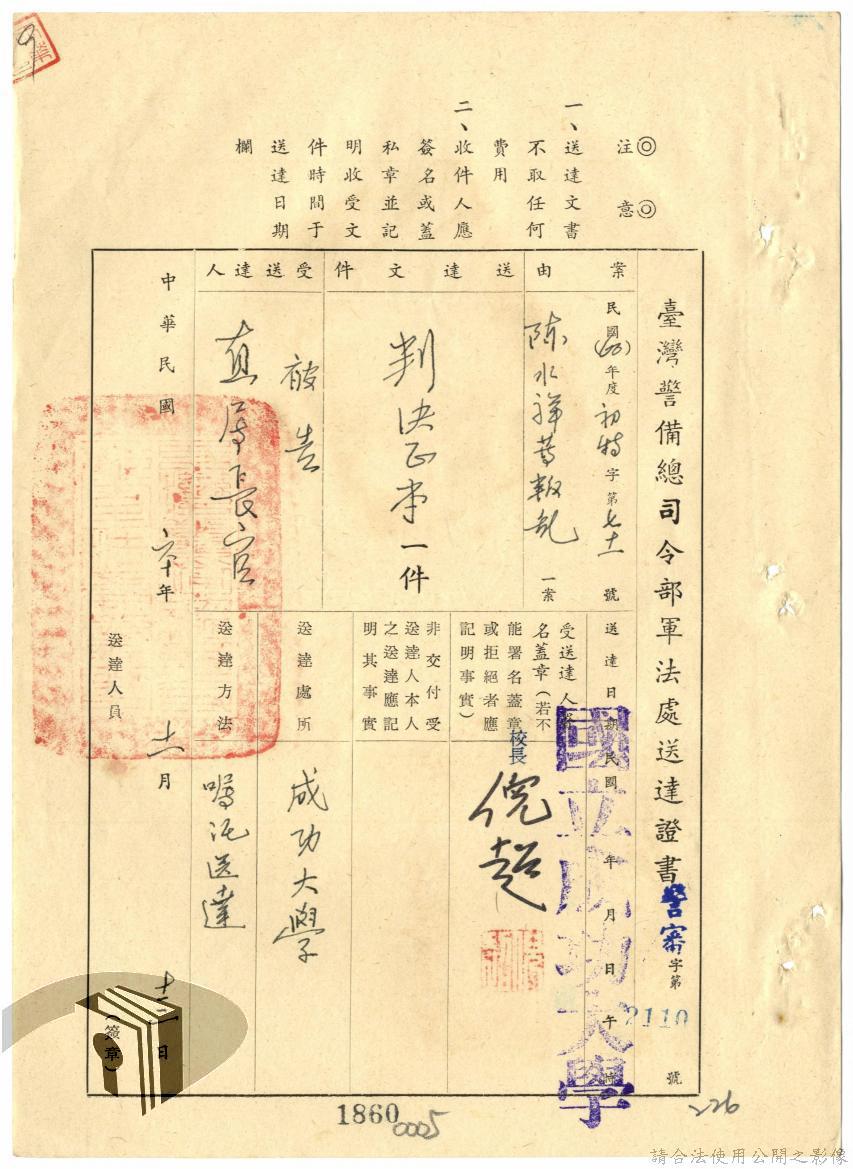 ◎注意◎
一、送達文書
不取任何
費用
二、收件人應
簽名或蓋
私章並記
明收受文
件時間于
送達日期
欄
臺灣警備總司令部軍法處送達證書 警審字第2110號
案由
民國(60)年度初特字第七十一號
陳水祥等叛亂一案
送達文件
判決正本一件
受送達人
被告
直屬長官
送達日期
民國 年 月 日 午 時
國立成功大學
受送達人
名蓋章(若不
能署名蓋章
或拒絕者應
記明事實)
校長
倪超
非交付受
送達人本人
之送達應記
明其事實
送達處所
成功大學
送達方法
囑託送達
中華民國 六十年 十一月 日
送達人員 (簽章)
1860
0005
226
請合法使用公開之影像